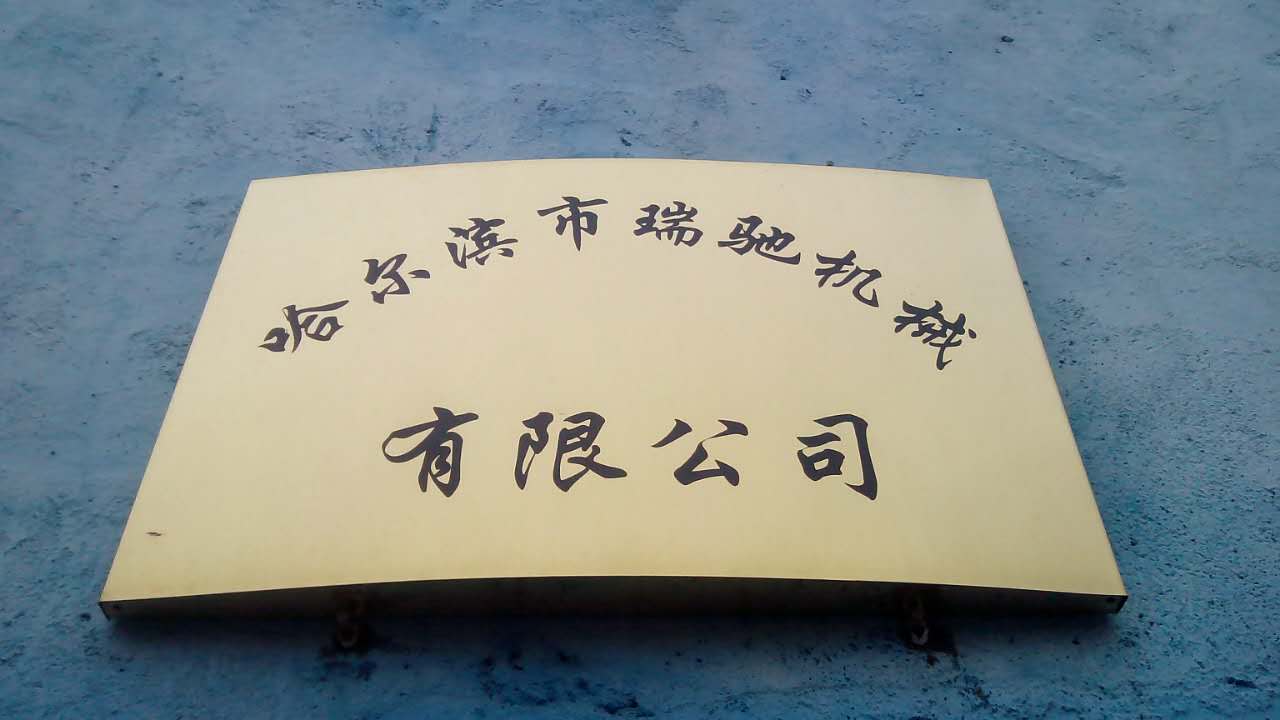 哈尔滨市瑞驰机械
有限公司